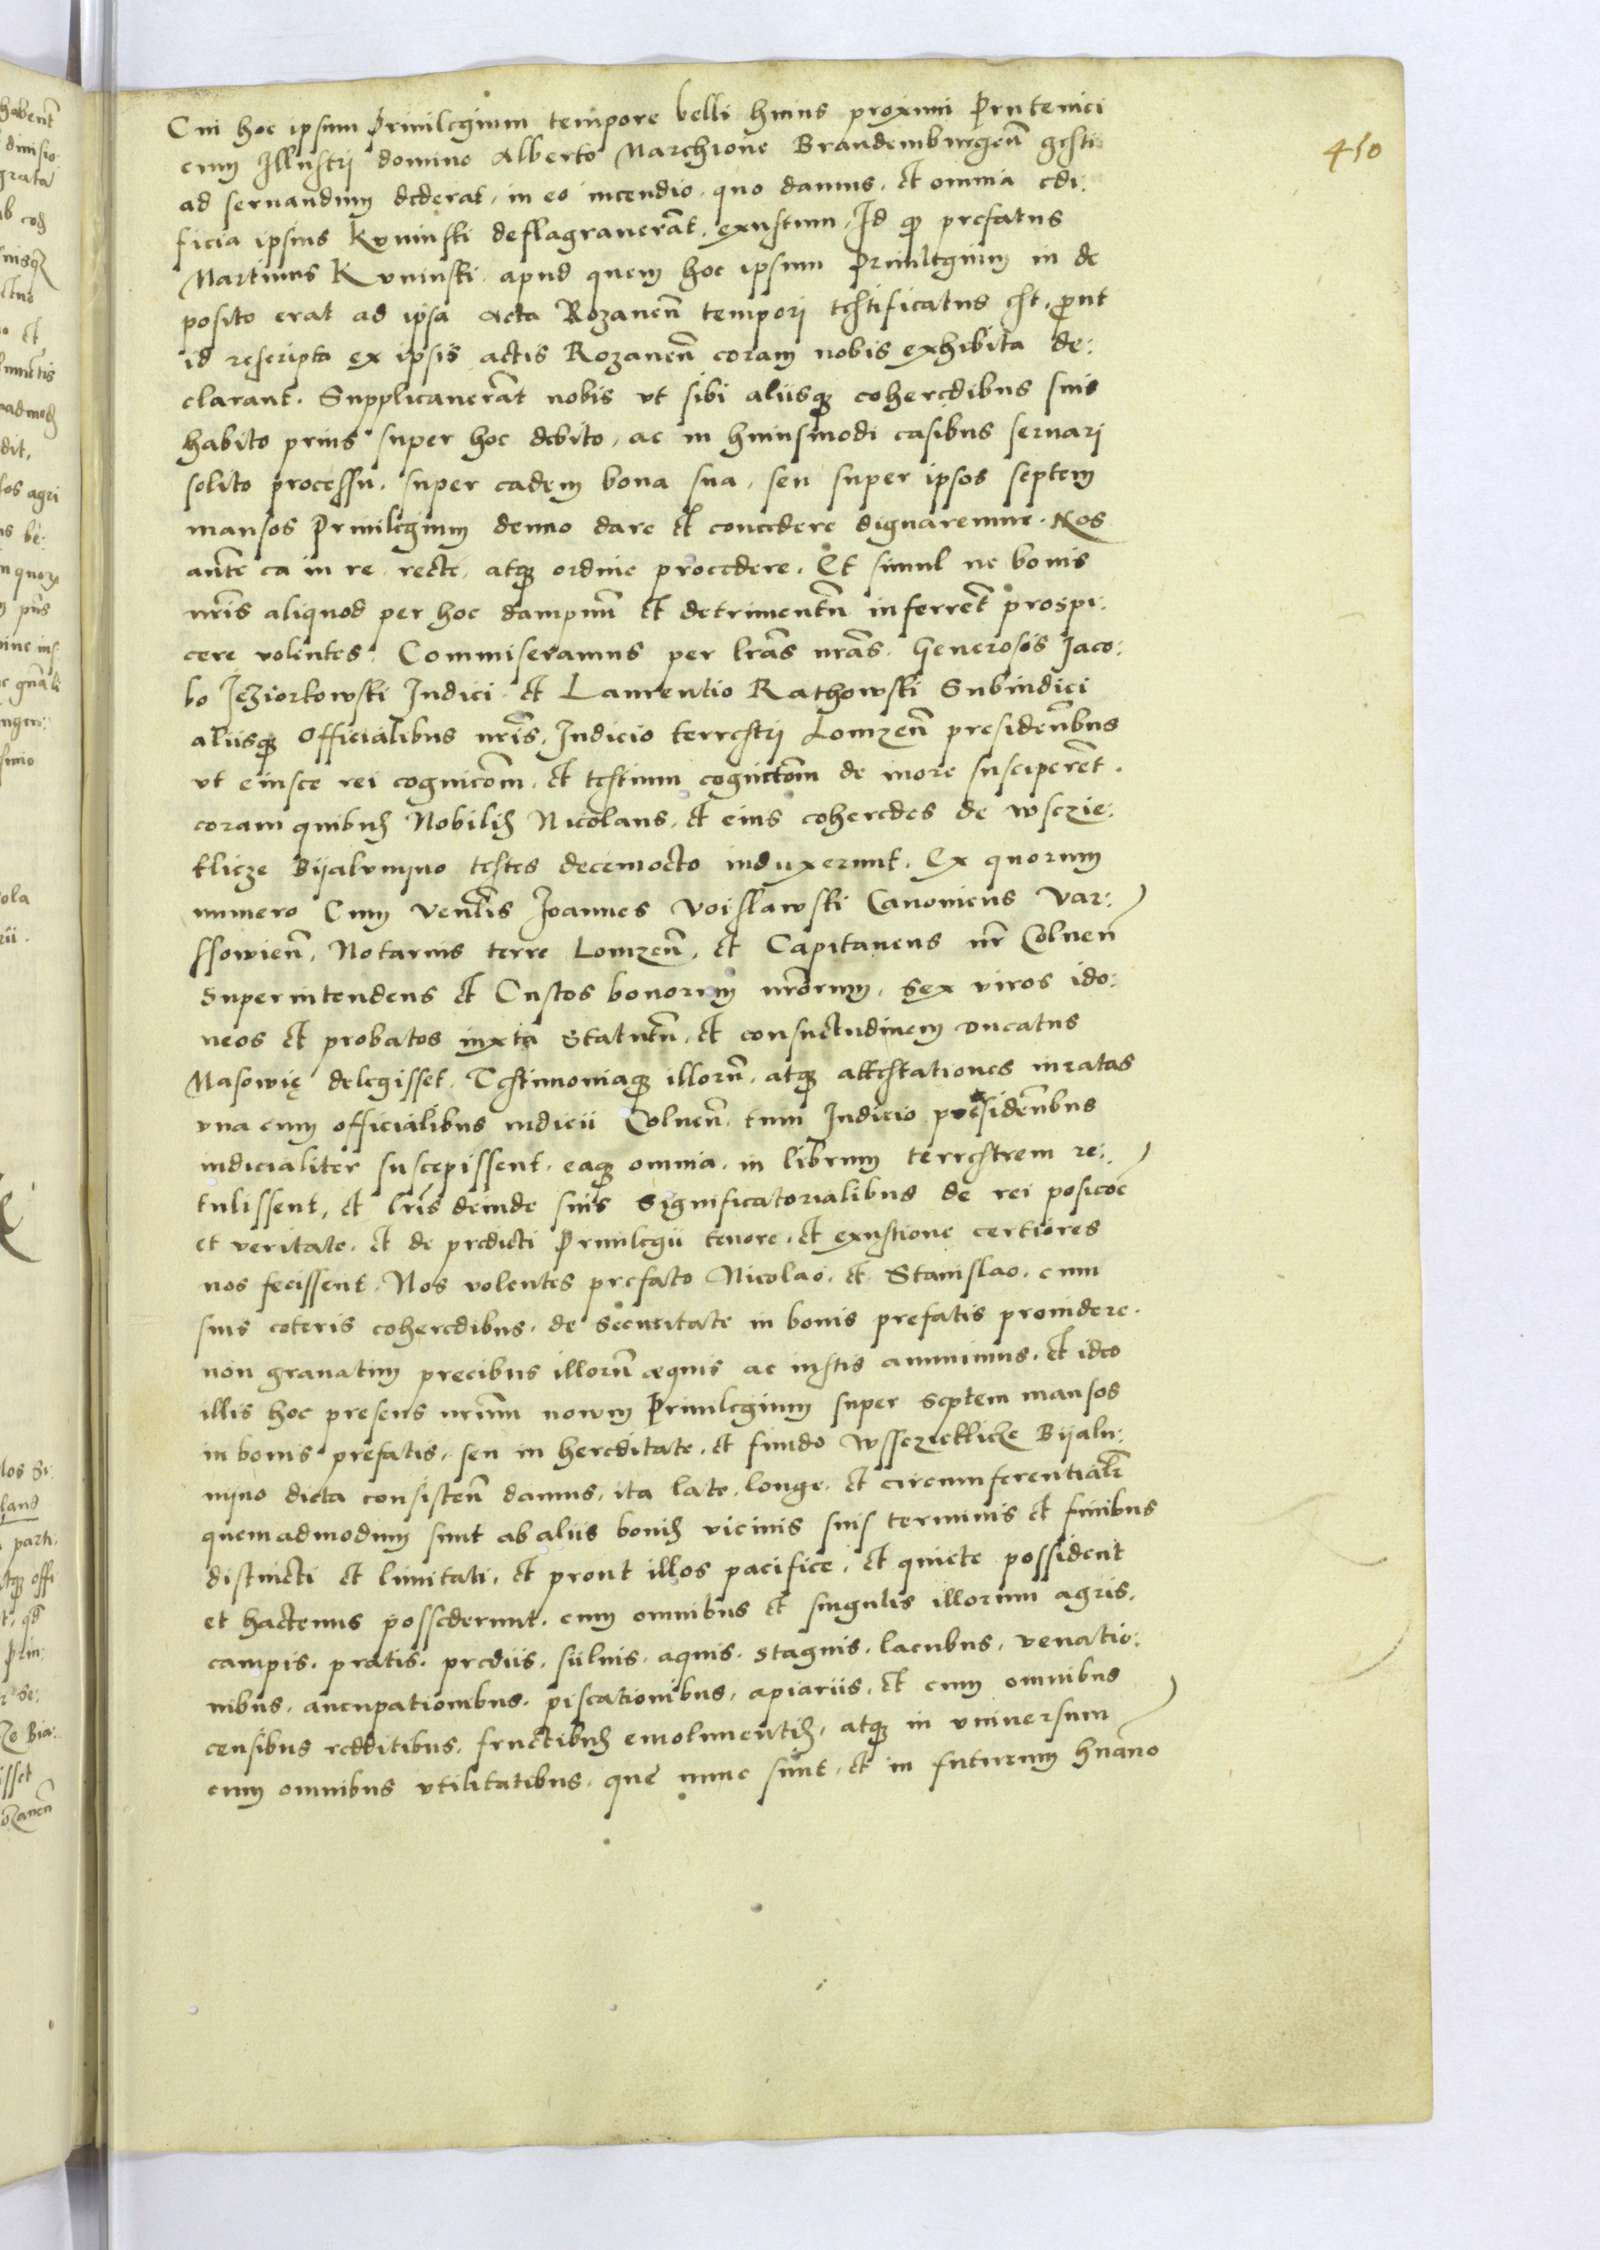 450
Cui hoc ipsum Privilegium tempore belli huius proximi Prutenici
cum Illustri domino Alberto Marchione Brandemburgeñ gesti
ad servandum dederat, in eo incendio, quo damus, et omnia edi:
ficia ipsius Kuninski deflagraverãt, exustum, Id q̃ prefatus
Martinus Kuninski apud quem hoc ipsum Privilegium in de
posito erat ad ipsa Acta Rozaneñ tempori testificatus est, prout
id rescripta ex ipsis actis Rozaneñ coram nobis exhibita de:
clarant. Supplicaverãt nobis ut sibi aliisq̃ coheredibus suis
habito prius super hoc debito, ac in huiusmodi casibus servari
solito processu, super eadem bona sua, seu super ipsos septem
mansos Privilegium denuo dare et concedere dignaremur. Nos
aute ea in re recte, atq̃ ordine procedere. Et simul ne bonis
nris aliquod per hoc dampnũ et detrimentũ inferrẽt prospi:
cere volentes. Commiseramus per lras nras. Generosis Jaco:
bo Jeziorkowski Judici et Laurentio Rathowski Subiudici
aliisq̃ Officialibus nris, Judicio terrestri Lomzeñ presidentibus
ut eiusce rei cognicõm, et testium cognictõm de more susciperẽt.
coram quibus Nobilis Nicolaus, et eius coheredes de wsczie:
klicze Bijalumyno testes decemocto induxerunt. Ex quorum
numero Cum Venlis Joannes Voislawski Canonicus Var:
ssowieñ, Notarius terre Lomzeñ, et Capitaneus nr Colneñ
Superintendens et Custos bonorum nrorum, Sex viros ido:
neos et probatos iuxta Statutũ, et consuetudinem Ducatus
Masowię delegisset. Testimoniaq̃ illorũ, atq̃ attestationes iuratas
una cum officialibus iudicii Colneñ, tum Judicio presidentibus
iudicialiter suscepissent, eaq̃ omnia, in librum terrestrem re:
tulissent, et lris deinde suis Significatorialibus de rei posicõe
et veritate, et de predicti Privilegii tenore, et exustione certiores
nos fecissent. Nos volentes prefato Nicolao, et Stanislao, cum
suis ceteris coheredibus, de securitate in bonis prefatis providere.
non gravatim precibus illorũ æquis ac iustis annuimus, et ideo
illis hoc presens nrum novum Privilegium super Septem mansos
in bonis prefatis, seu in hereditate, et fundo Wssczieklicze Bijalu:
mijno dicta consisteñ damus, ita late, longe, et circumferentialr
quemadmodum sunt ab aliis bonis vicinis suis terminis et finibus
distincti et limitati, et prout illos pacifice, et quiete possident
et hactenus possederunt, cum omnibus et singulis illorum agris,
campis, pratis, prediis, silvis, aquis, stagnis, lacubus, venatio:
nibus, aucupationibus, piscationibus, apiariis, et cum omnibus
censibus redditibus, fructibus emolumentis, atq̃ in universum
cum omnibus utilitatibus, que nunc sunt, et in futurum hũano